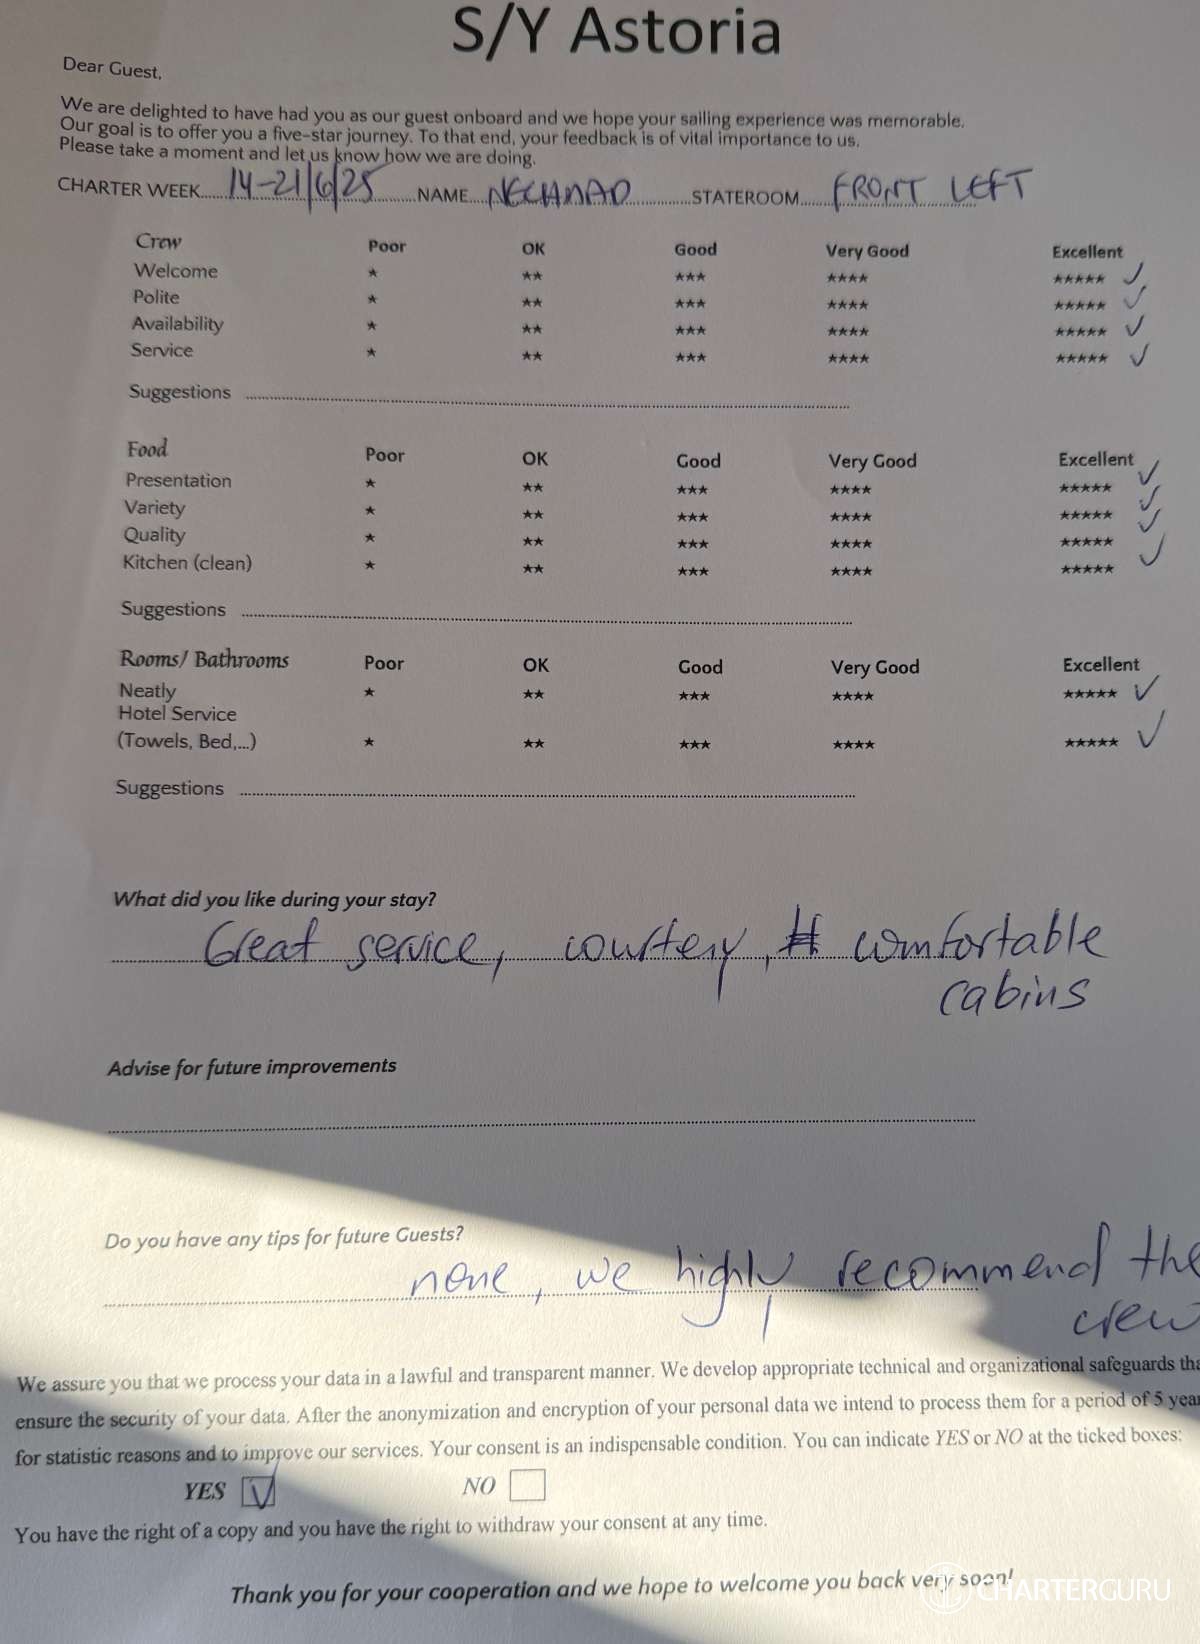 S/Y Astoria
Dear Guest,
We are delighted to have had you as our guest onboard and we hope your sailing experience was memorable.
Our goal is to offer you a five-star journey. To that end, your feedback is of vital importance to us.
Please take a moment and let us know how we are doing.
CHARTER WEEK...... 14-21/6/25 ......NAME.... NECHMAD ...............STATEROOM...... FRONT LEFT
Crew Poor OK Good Very Good Excellent
Welcome ★ ★★ ★★★ ★★★★ ★★★★★ ✓
Polite ★ ★★ ★★★ ★★★★ ★★★★★ ✓
Availability ★ ★★ ★★★ ★★★★ ★★★★★ ✓
Service ★ ★★ ★★★ ★★★★ ★★★★★ ✓
Suggestions
Food Poor OK Good Very Good Excellent
Presentation ★ ★★ ★★★ ★★★★ ★★★★★ ✓
Variety ★ ★★ ★★★ ★★★★ ★★★★★ ✓
Quality ★ ★★ ★★★ ★★★★ ★★★★★ ✓
Kitchen (clean) ★ ★★ ★★★ ★★★★ ★★★★★ ✓
Suggestions
Rooms/ Bathrooms Poor OK Good Very Good Excellent
Neatly ★ ★★ ★★★ ★★★★ ★★★★★ ✓
Hotel Service
(Towels, Bed,...) ★ ★★ ★★★ ★★★★ ★★★★★ ✓
Suggestions
What did you like during your stay?
Great service, courtesy, comfortable
cabins
Advise for future improvements
Do you have any tips for future Guests?
none, we highly recommend the
crew
We assure you that we process your data in a lawful and transparent manner. We develop appropriate technical and organizational safeguards tha
ensure the security of your data. After the anonymization and encryption of your personal data we intend to process them for a period of 5 year
for statistic reasons and to improve our services. Your consent is an indispensable condition. You can indicate YES or NO at the ticked boxes:
YES ✓ NO
You have the right of a copy and you have the right to withdraw your consent at any time.
Thank you for your cooperation and we hope to welcome you back very soon!
CHARTERGURU